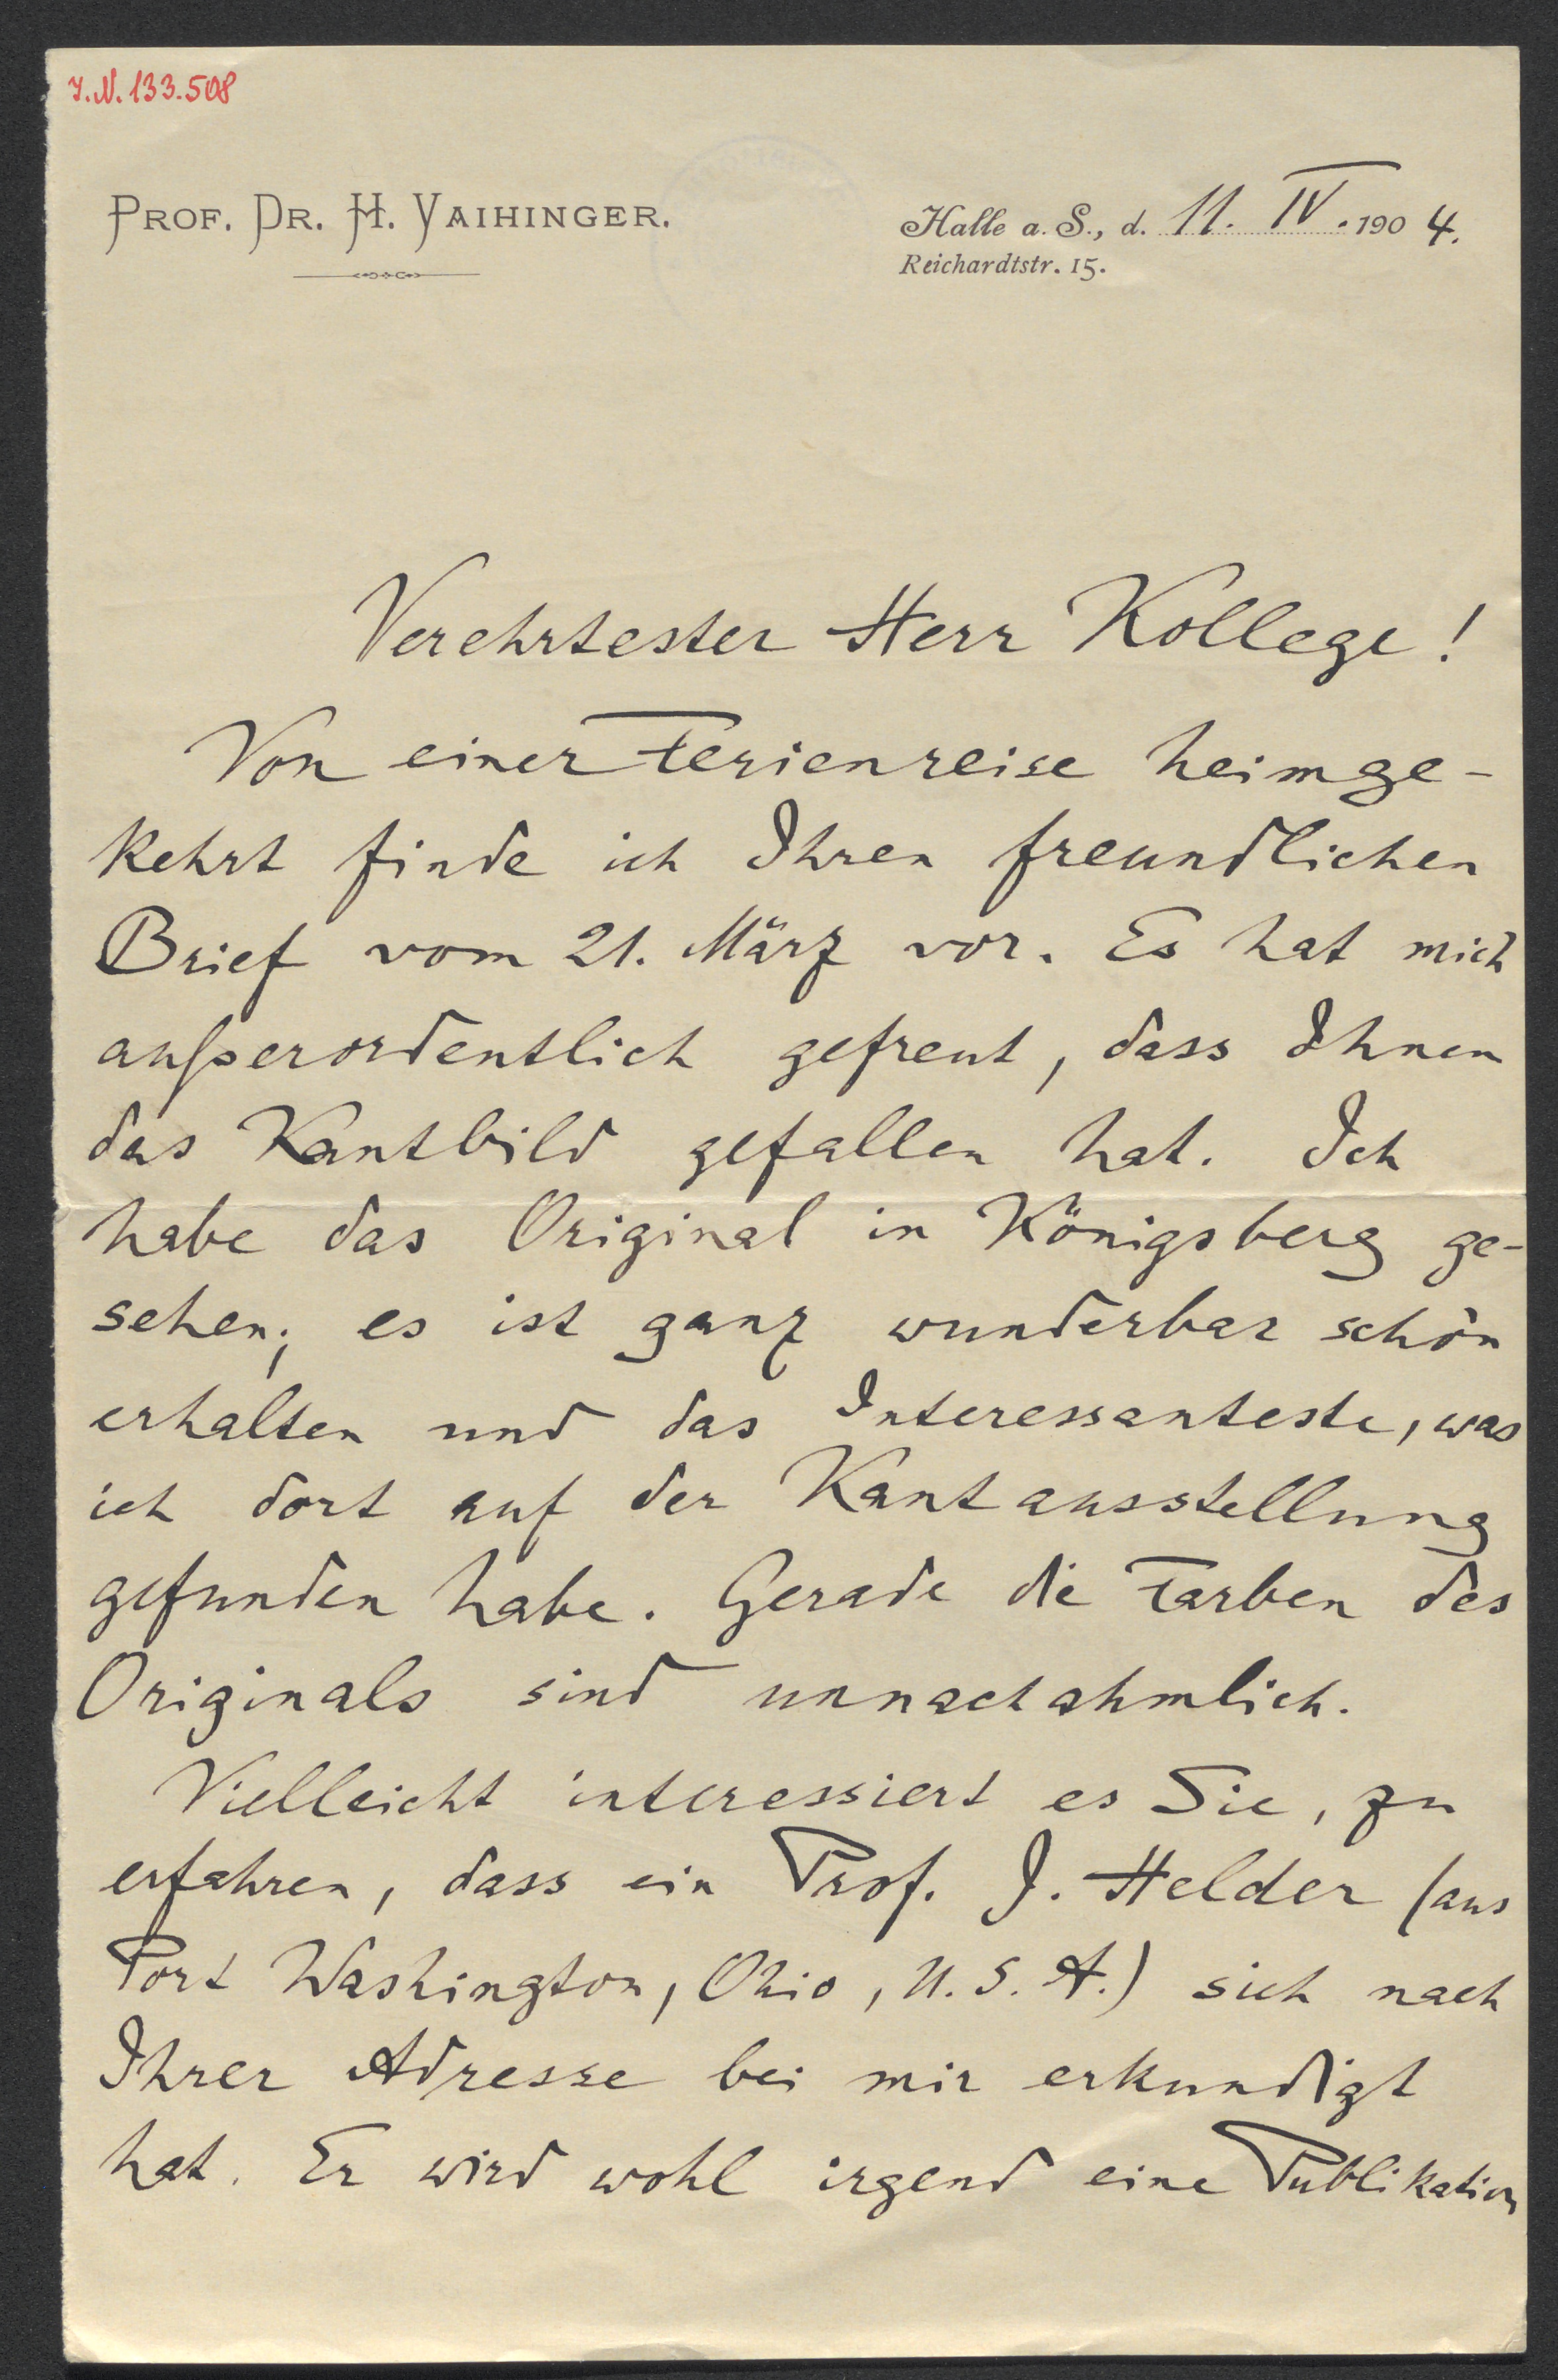 I.N. 133.508
PROF. DR. H. VAIHINGER.
Halle a. S., d. 11. IV. 1904.
Reichardtstr. 15.
Verehrtester Herr Kollege!
Von einer Ferienreise heimge-
kehrt finde ich Ihren freundlichen
Brief vom 21. März vor. Es hat mich
außerordentlich gefreut, dass Ihnen
das Kantbild gefallen hat. Ich
habe das Original in Königsberg ge-
sehen; es ist ganz wunderbar schön
erhalten und das Interessanteste, was
ich dort auf der Kantausstellung
gefunden habe. Gerade die Farben des
Originals sind unnachahmlich.
Vielleicht interessiert es Sie, zu
erfahren, dass ein Prof. J. Helder (aus
Port Washington, Ohio, U.S.A.) sich nach
Ihrer Adresse bei mir erkundigt
hat. Er wird wohl irgend eine Publikation